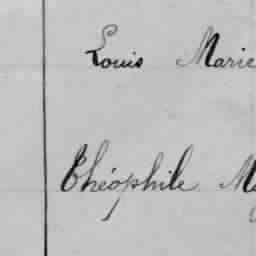 Louis Marie
Théophile